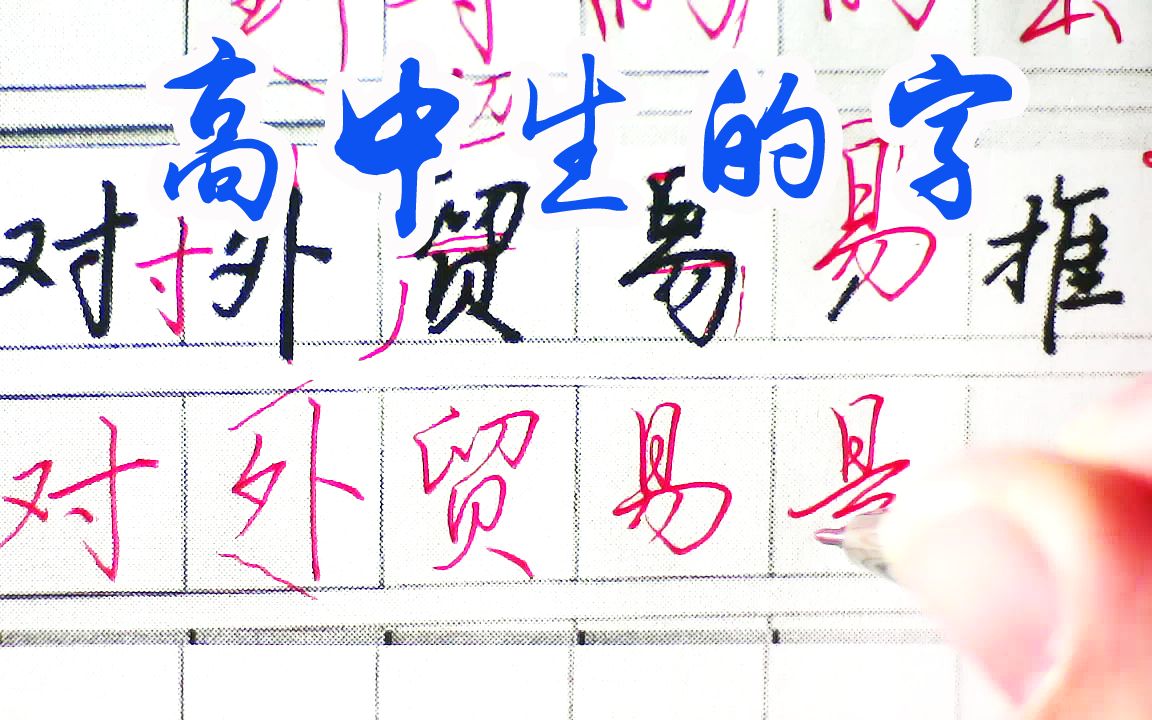 高中生的字
对寸外贸易易推
对外贸易